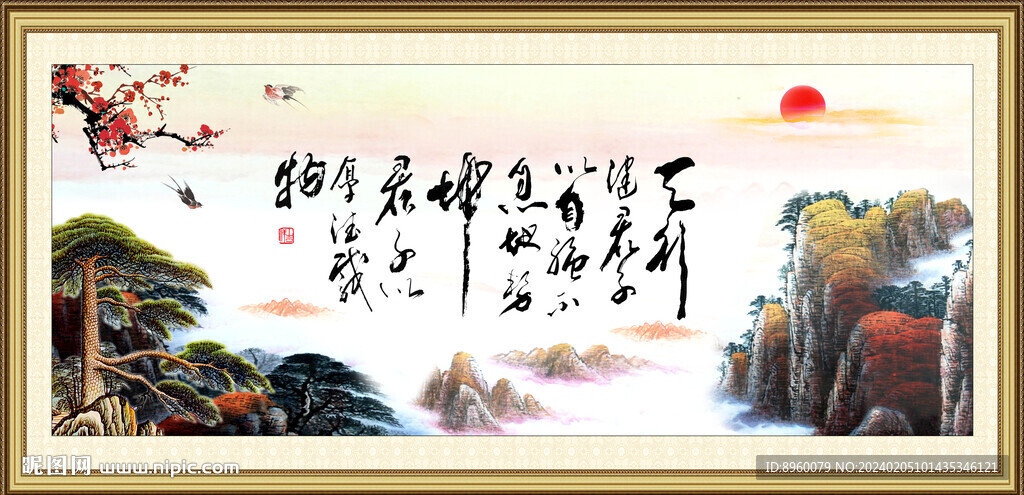 天行
健君子
以自强不
息地势
坤
君子以
厚德载
物
昵图网 www.nipic.com
ID:8960079 NO:20240205101435346121